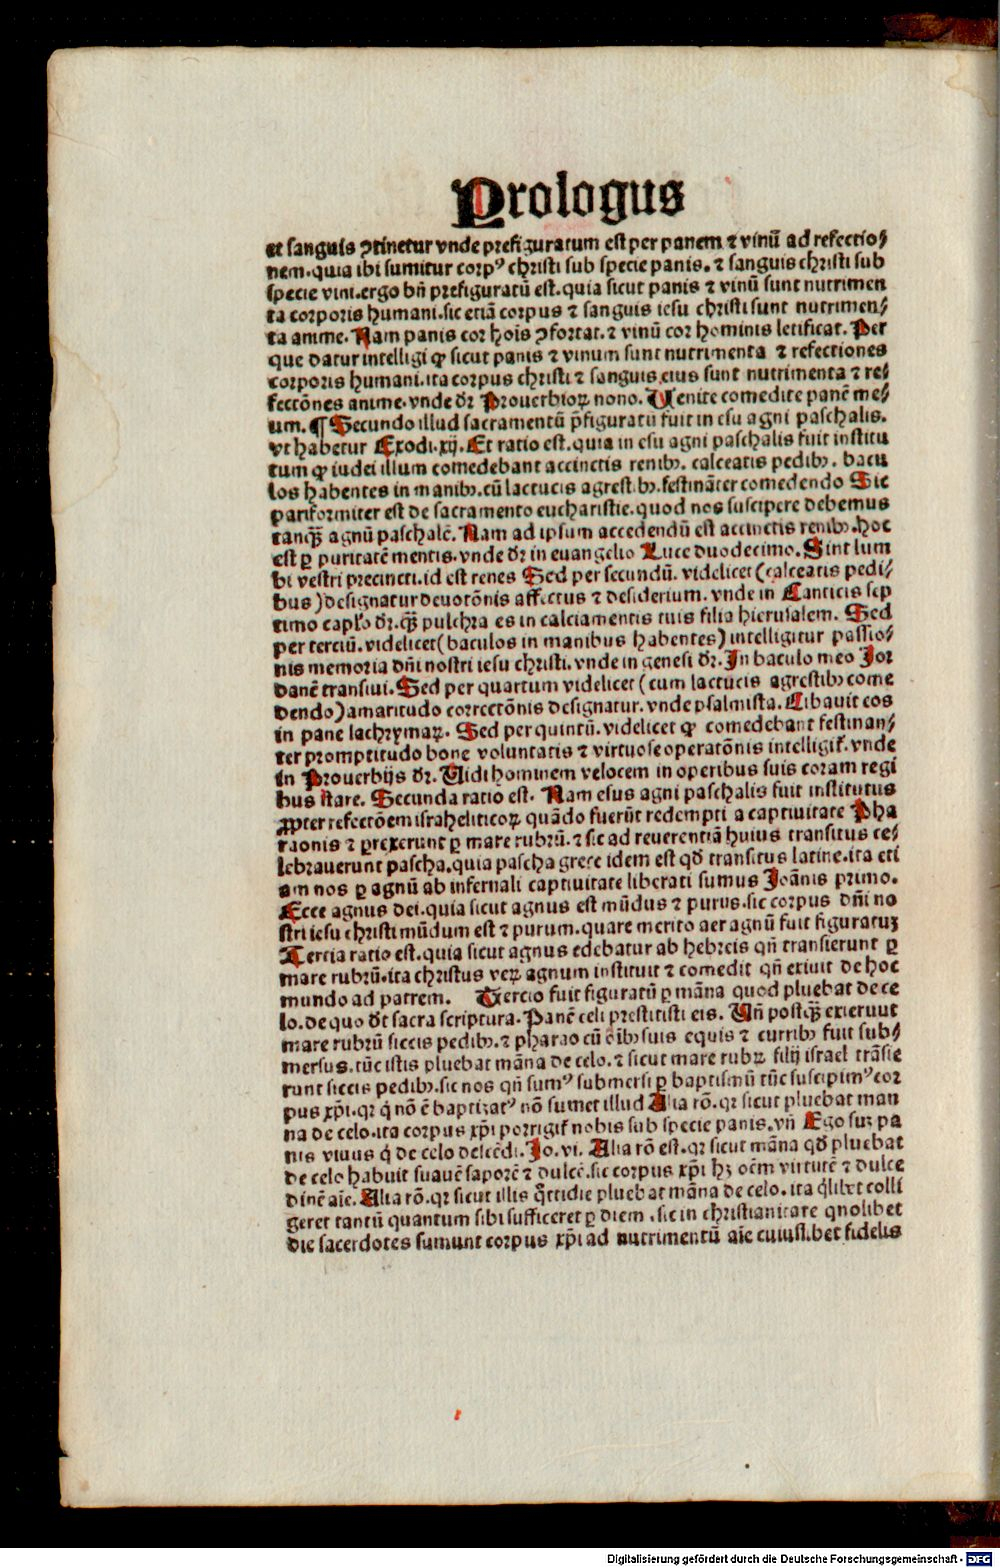 Prologus
et sanguis ꝯtinetur vnde prefiguratum est per panem ⁊ vinū ad refectio⸗
nem. quia ibi sumitur corpꝰ christi sub specie panis. ⁊ sanguis christi sub
specie vini. ergo bn̄ prefiguratū est. quia sicut panis ⁊ vinū sunt nutrimen
ta corporis humani. sic etiā corpus ⁊ sanguis iesu christi sunt nutrimen⸗
ta anime. Nam panis cor hoīs ꝯfortat. ⁊ vinū cor hominis letificat. Per
que datur intelligi ꝙ sicut panis ⁊ vinum sunt nutrimenta ⁊ refectiones
corporis humani. ita corpus christi ⁊ sanguis eius sunt nutrimenta ⁊ re⸗
fectōnes anime. vnde dr̄ Prouerbioꝝ nono. Uenite comedite panē me⸗
um. ¶ Secundo illud sacramentū p̄figuratū fuit in esu agni paschalis.
vt habetur Exodi. xij. Et ratio est. quia in esu agni paschalis fuit institu
tum ꝙ iudei illum comedebant accinctis renibꝫ. calceatis pedibꝫ. bacu
los habentes in manibꝫ. cū lactucis agrestibꝫ. festināter comedendo Sic
pariformiter est de sacramento eucharistie. quod nos suscipere debemus
tanꝙ̄ agnū paschalē. Nam ad ipsum accedendū est accinctis renibꝫ. hoc
est ꝑ puritatē mentis. vnde dr̄ in euangelio Luce duodecimo. Sint lum
bi vestri precincti. id est renes Sed per secundū. videlicet (calceatis pedi⸗
bus) designatur deuotōnis affectus ⁊ desiderium. vnde in Canticis sep
timo capło dr̄. ꝙ̄ pulchra es in calciamentis tuis filia hierusalem. Sed
per terciū. videlicet (baculos in manibus habentes) intelligitur passio⸗
nis memoria dn̄i nostri iesu christi. vnde in genesi dr̄. In baculo meo Jor
danē transiui. Sed per quartum videlicet (cum lactucis agrestibꝫ come
dendo) amaritudo correctōnis designatur. vnde psalmista. Cibauit eos
in pane lachrymaꝝ. Sed per quintū. videlicet ꝙ comedebant festinan⸗
ter promptitudo bone voluntatis ⁊ virtuose operatōnis intelligit̄. vnde
in Prouerbijs dr̄. Uidi hominem velocem in operibus suis coram regi
bus stare. Secunda ratio est. Nam esus agni paschalis fuit institutus
ꝓpter refectōem israheliticoꝝ quādo fuerūt redempti a captiuitate Pha
raonis ⁊ ꝑrexerunt ꝑ mare rubrū. ⁊ sic ad reuerentiā huius transitus ce⸗
lebrauerunt pascha. quia pascha grece idem est qď transitus latine. ita eti
am nos ꝑ agnū ab infernali captiuitate liberati sumus Joānis primo.
Ecce agnus dei. quia sicut agnus est mūdus ⁊ purus. sic corpus dn̄i no
stri iesu christi mūdum est ⁊ purum. quare merito aer agnū fuit figuratuꝫ
Tercia ratio est. quia sicut agnus edebatur ab hebreis qn̄ transierunt ꝑ
mare rubrū. ita christus veꝝ agnum instituit ⁊ comedit qn̄ exiuit de hoc
mundo ad patrem. Tercio fuit figuratū ꝑ māna quod pluebat de ce
lo. de quo dt̄ sacra scriptura. Panē celi prestitisti eis. Un̄ postꝙ̄ exieruut
mare rubrū siccis pedibꝫ. ⁊ pharao cū oībꝫ suis equis ⁊ curribꝫ fuit sub⸗
mersus. tūc istis pluebat māna de celo. ⁊ sicut mare rubꝝ filij israel trāsie
runt siccis pedibꝫ. sic nos qn̄ sumꝰ submersi ꝑ baptismū tūc suscipimꝰ cor
pus xp̄i. qr q̇ nō ē baptizatꝰ nō sumet illud Alia rō. qr sicut pluebat man
na de celo. ita corpus xp̄i porrigit̄ nobis sub specie panis. vn̄ Ego suꝫ pa
nis viuus q̇ de celo descēdi. Jo. vi. Alia rō est. qr sicut māna qď pluebat
de celo habuit suauē saporē ⁊ dulcē. sic corpus xp̄i hꝫ oēm virtutē ⁊ dulce
dinē aīe. Alia rō. qr sicut illis q̊ttidie pluebat māna de celo. ita q̇libet colli
geret tantū quantum sibi sufficeret ꝑ diem. sic in christianitate qnolibet
die sacerdotes sumunt corpus xp̄i ad nutrimentū aīe cuiuslibet fidelis
Digitalisierung gefördert durch die Deutsche Forschungsgemeinschaft - DFG